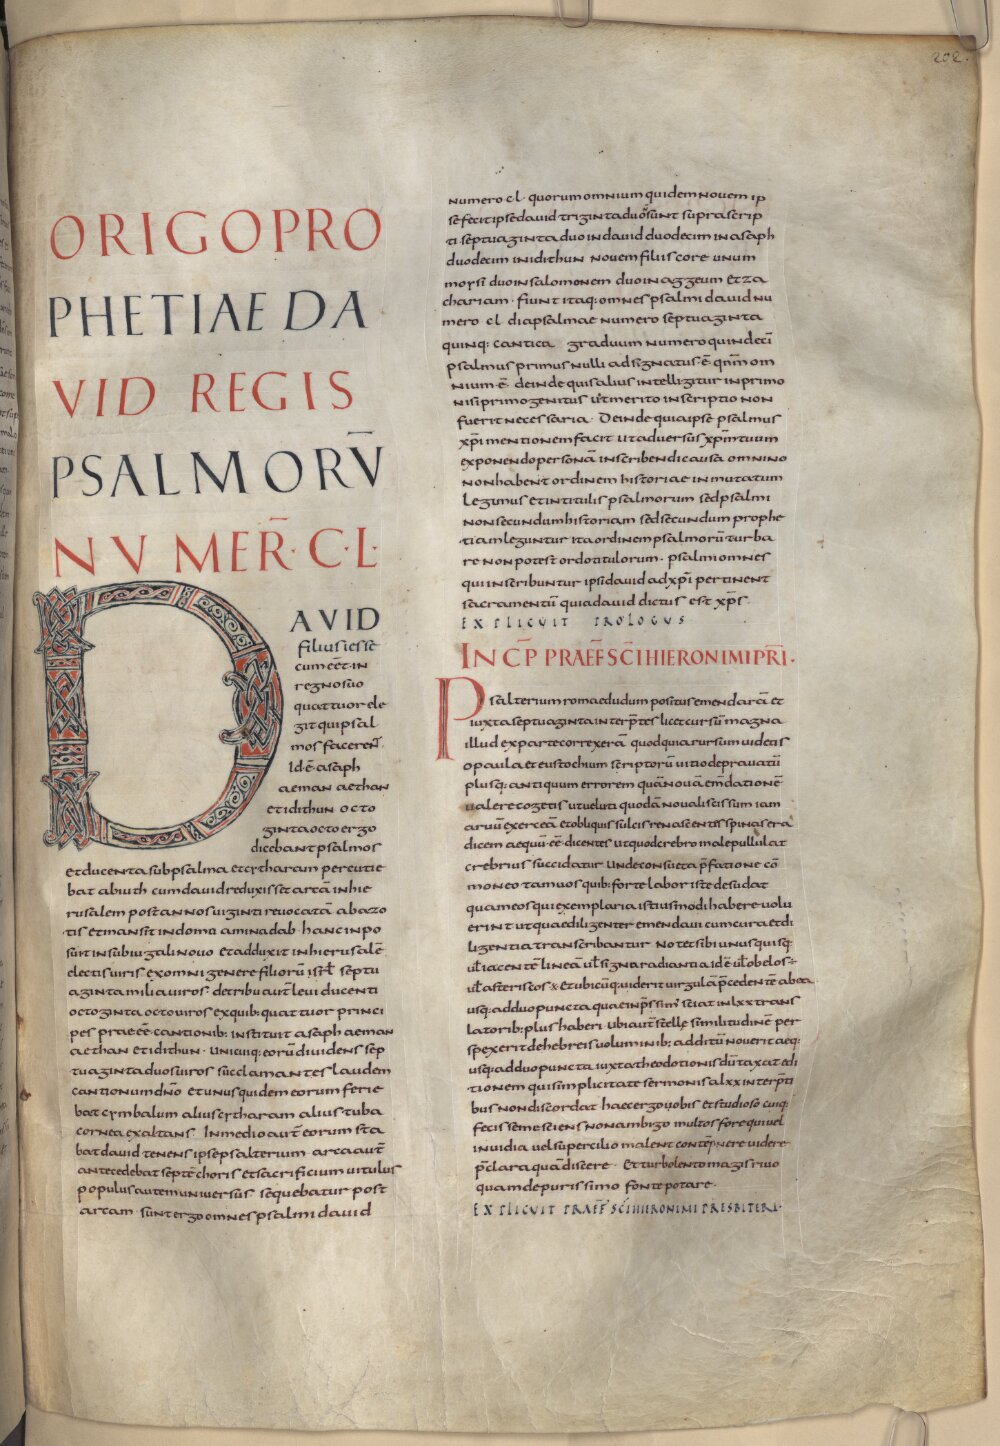 202.
ORIGO PRO
PHETIAE DA
VID REGIS
PSALMORŪ
NUMER̄·C·L·
DAVID
filius iesse
cum eēt in
regno suo
quattuor ele
git qui psal
mos facereñt
Id·ē·asaph
aeman aethan
et idithun octo
ginta octo ergo
dicebant psalmos
et ducenta subpsalma et cytharam percutie
bat abiuth cum david reduxisset arcā in hie
rusalem post annos viginti revocatā abazo
tis et mansit in domu aminadab· hanc inpo
suit in subiugali novo et adduxit in hierusalē
electis viris ex omni genere filiorū isrl̄ septu
aginta milia viros· de tribu aut̄ levi ducenti
octoginta octo viros ex quib: quattuor princi
pes praeeē· cantionib: instituit asaph aeman
aethan et idithun· unicuiq: eorū dividens sep
tuaginta duos viros succlamantes laudem
cantionum dn̄o et unus quidem eorum ferie
bat cymbalum alius cytharam alius tuba
cornea exaltans· In medio aut̄ eorum sta
bat david tenens ipse psalterium arca aut̄
antecedebat septē choris et sacrificium vitulus
populus autem universus sequebatur post
arcam sunt ergo omnes psalmi david
numero cl· quorum omnium quidem novem ip
se fecit ipse david triginta duo sunt suprascrip
ti septuaginta duo in david duodecim in asaph
duodecim in idithun novem filiis core unum
moysi duo in salomonem duo in aggeum et za
chariam· fiunt itaq: omnes psalmi david nu
mero cl diapsalmae numero septuaginta
quinq: cantica graduum numero quindecī
psalmus primus nulli adsignatus·ē· qnm̄ om
nium·ē· deinde quis alius intellegitur in primo
nisi primogenitus ut merito inscriptio non
fuerit necessaria· Deinde quia ipse psalmus
xp̄i mentionem facit ut adversus xpm̄ tuum
exponendo personā inscribendi causa omnino
non habent ordinem historiae inmutatum
legimus et in titulis psalmorum sed psalmi
non secundum historiam sed secundum prophe
tiam leguntur ita ordinem psalmorū turba
re non potest ordo titulorum· psalmi omnes
qui inscribuntur ipsi david ad xp̄i pertinent
sacramentū quia david dictus est xp̄s·
EXPLICUIT PROLOGUS
INCP̄ PRAEF̄ SCĪ HIERONIMI PRĪ·
Psalterium romae dudum positus emendarā et
iuxta septuaginta interp̄tes licet cursū magna
illud ex parte correxerā quod quia rursum videtis
o paula et eustochium scriptorū vitio depravatū
plusq: antiquum errorem quā novā em̄dationē
valere cogetis ut veluti quodā novali scissum iam
arvū exerceā et obliquis sulcis renascentes spinas era
dicem aequū·eē·dicentes ut quod crebro male pullulat
crebrius succidatur unde consueta p̄fatione cō
moneo tam vos quib: forte labor iste desudat
quam eos qui exemplaria istiusmodi habere volu
erint ut quae diligenter emendavi cum cura et di
ligentia transcribantur notet sibi unusquisq:
ul̄ iacentē lineā ul̄ signa radiantia id·ē· ul̄ obelos÷
ul̄ asteriscos※ et ubicūq: viderit virgulā p̄cedentē ab ea
usq: ad duo puncta quae inp̄ssim: sciat in lxx trans
latorib: plus haberi· ubi aut̄ stellę similitudinē per
spexerit de hebreis voluminib: additū noverit aeq:
usq: ad duo puncta iuxta theodotionis dūtaxat edi
tionem qui simplicitate sermonis a lxx interp̄ti
bus non discordat haec ergo vobis et studioso cuiq:
fecisse me sciens non ambigo multos fore qui vel
invidia vel supercilio malent contēpnere videre
p̄clara quā discere· et turbolento magis rivo
quam de purissimo fonte potare·
EXPLICUIT PRAEF̄ SCĪ HIERONIMI PRESBITERI·